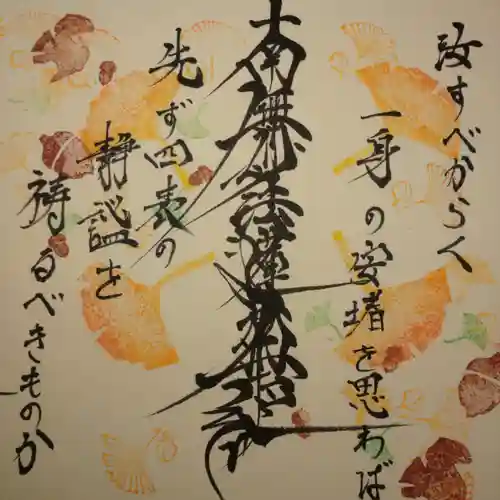 汝すべからく
一身の安堵を思わば
南無妙法蓮華経
先ず四表の
静謐を
祷るべきものか